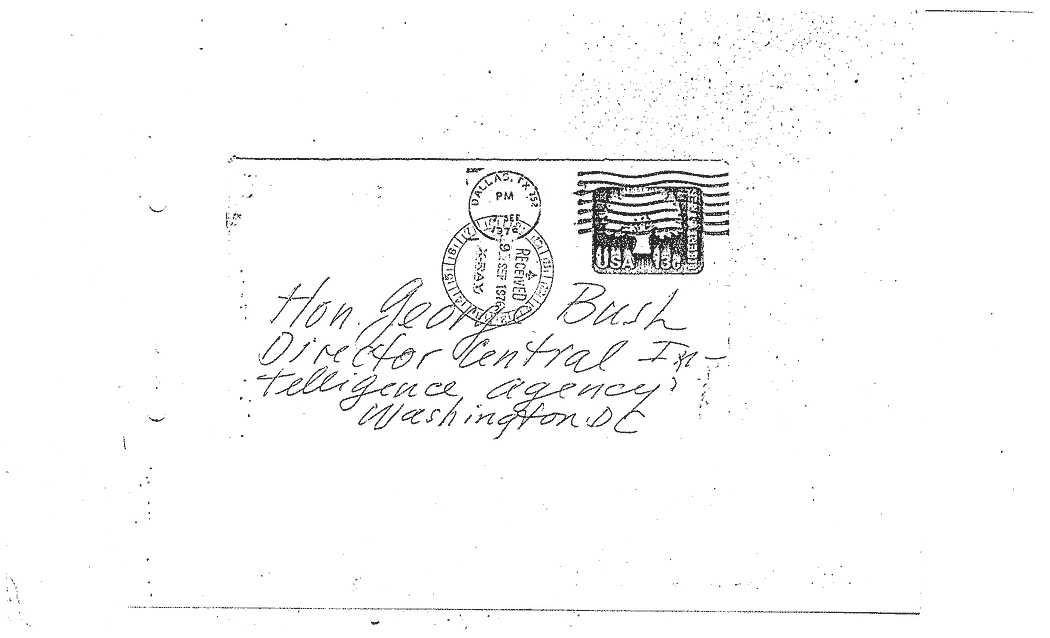 DALLAS, TX 752
PM
SEP
1976
USA 13c
RECEIVED
SEP 1976
X-RAY
Hon. George Bush
Director Central In-
telligence agency
Washington DC